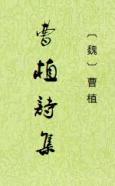 〔魏〕曹植
曹植詩集